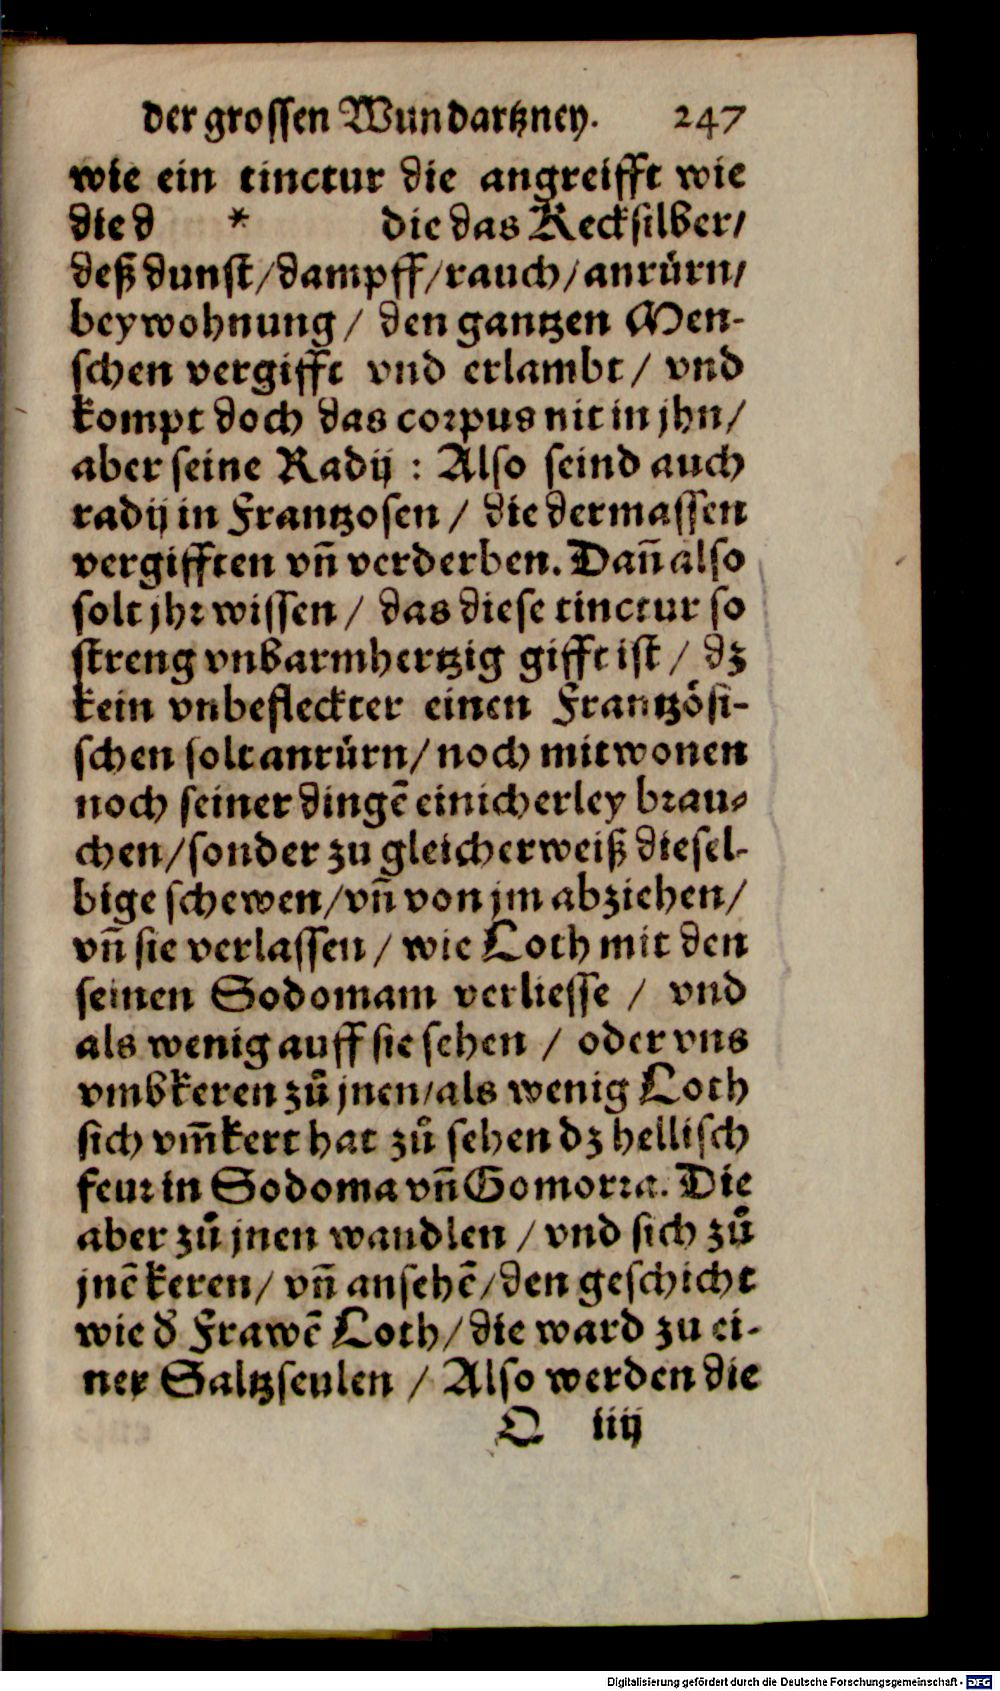 der grossen Wundartzney. 247
wie ein tinctur die angreifft wie
die d * die das Kecksilber/
deß dunst/dampff/rauch/anrürn/
beywohnung / den gantzen Men-
schen vergifft vnd erlambt / vnd
kompt doch das corpus nit in jhn/
aber seine Radij : Also seind auch
radij in Frantzosen / die dermassen
vergifften vñ verderben. Dañ also
solt jhr wissen / das diese tinctur so
streng vnbarmhertzig gifft ist / dz
kein vnbefleckter einen Frantzösi-
schen solt anrürn/noch mitwonen
noch seiner dingẽ einicherley brau-
chen/sonder zu gleicherweiß diesel-
bige schewen/vñ von jm abziehen/
vñ sie verlassen / wie Loth mit den
seinen Sodomam verliesse / vnd
als wenig auff sie sehen / oder vns
vmbkeren zů jnen/als wenig Loth
sich vm̃kert hat zů sehen dz hellisch
feur in Sodoma vñ Gomorra. Die
aber zů jnen wandlen / vnd sich zů
jnẽ keren/ vñ ansehẽ/den geschicht
wie d' Frawẽ Loth/die ward zu ei-
ner Saltzseulen / Also werden die
Q iiij
Digitalisierung gefördert durch die Deutsche Forschungsgemeinschaft - DFG